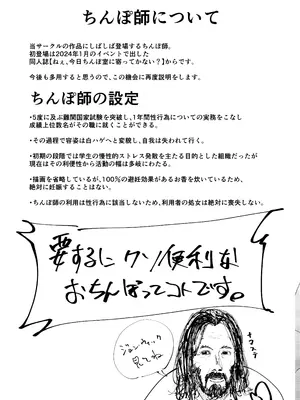 ちんぽ師について
当サークルの作品にしばしば登場するちんぽ師。
初登場は2024年1月のイベントで出した
同人誌【ねぇ、今日ちんぽ室に寄ってかない？】からです。
今後も多用すると思うので、この機会に再度説明をします。
ちんぽ師の設定
・5度に及ぶ難関国家試験を突破し、1年間性行為についての実務をこなし
成績上位数名がその職に就くことができる。
・その過程で容姿は白ハゲへと変貌し、自我は失われて行く。
・初期の段階では学生の慢性的ストレス発散を主たる目的とした組織だったが
現在はその利便性から活動の幅は多岐にわたる。
・描画を省略しているが、100%の避妊効果があるお香を炊いているため、
絶対に妊娠することはない。
・ちんぽ師の利用は性行為に該当しないため、利用者の処女は絶対に喪失しない。
要するにクソ便利な
おちんぽってコトです。
ジョンウィック
見てね
ナマステ